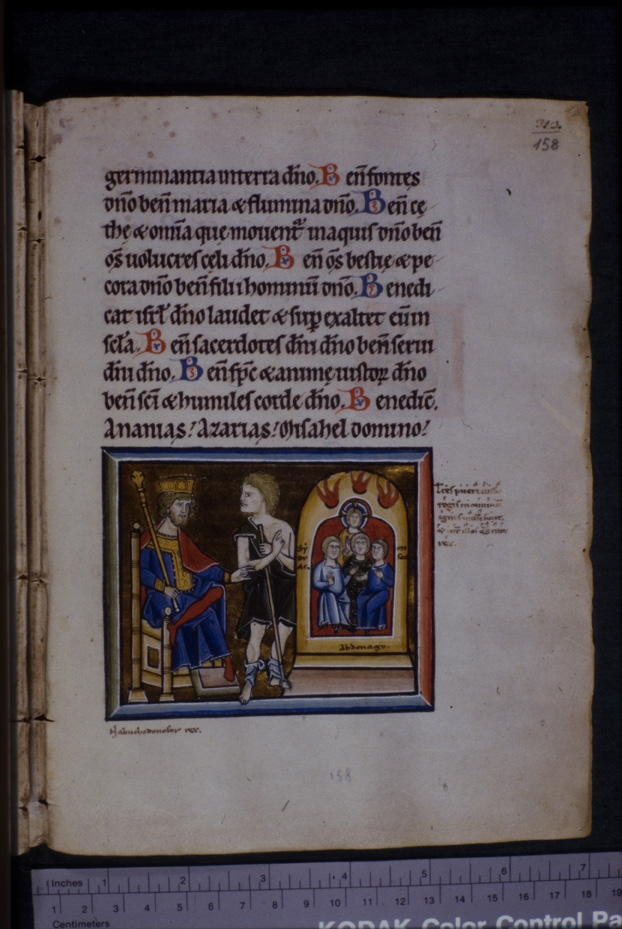 313.
158
germinantia interra dño. B eñ fontes
dño beñ maria & flumina dño. B eñ cę
the & om̄a que mouent᷑ inaquis dño beñ
os̄ uolucres celi dño. B eñ os̄ bestię & pe
cora dño beñ filii hominū dño. B enedi
cat isrł dño laudet & sup exaltet eūm
seła. B eñ sacerdotes dñi dño beñ serui
dñi dño. B eñ sp̄c & animę iustoꝝ dño
beñ sc̄i & humiles corde dño. B enedic̄.
Ananias! Azarias! Misahel domino!
Tres pueri
Abdenago.
Nabuchodonosor rex.
158
Inches 1 2 3 4 5 6 7
1 2 3 4 5 6 7 8 9 10 11 12 13 14 15 16 17 18 19
Centimeters
KODAK Color Control Pa